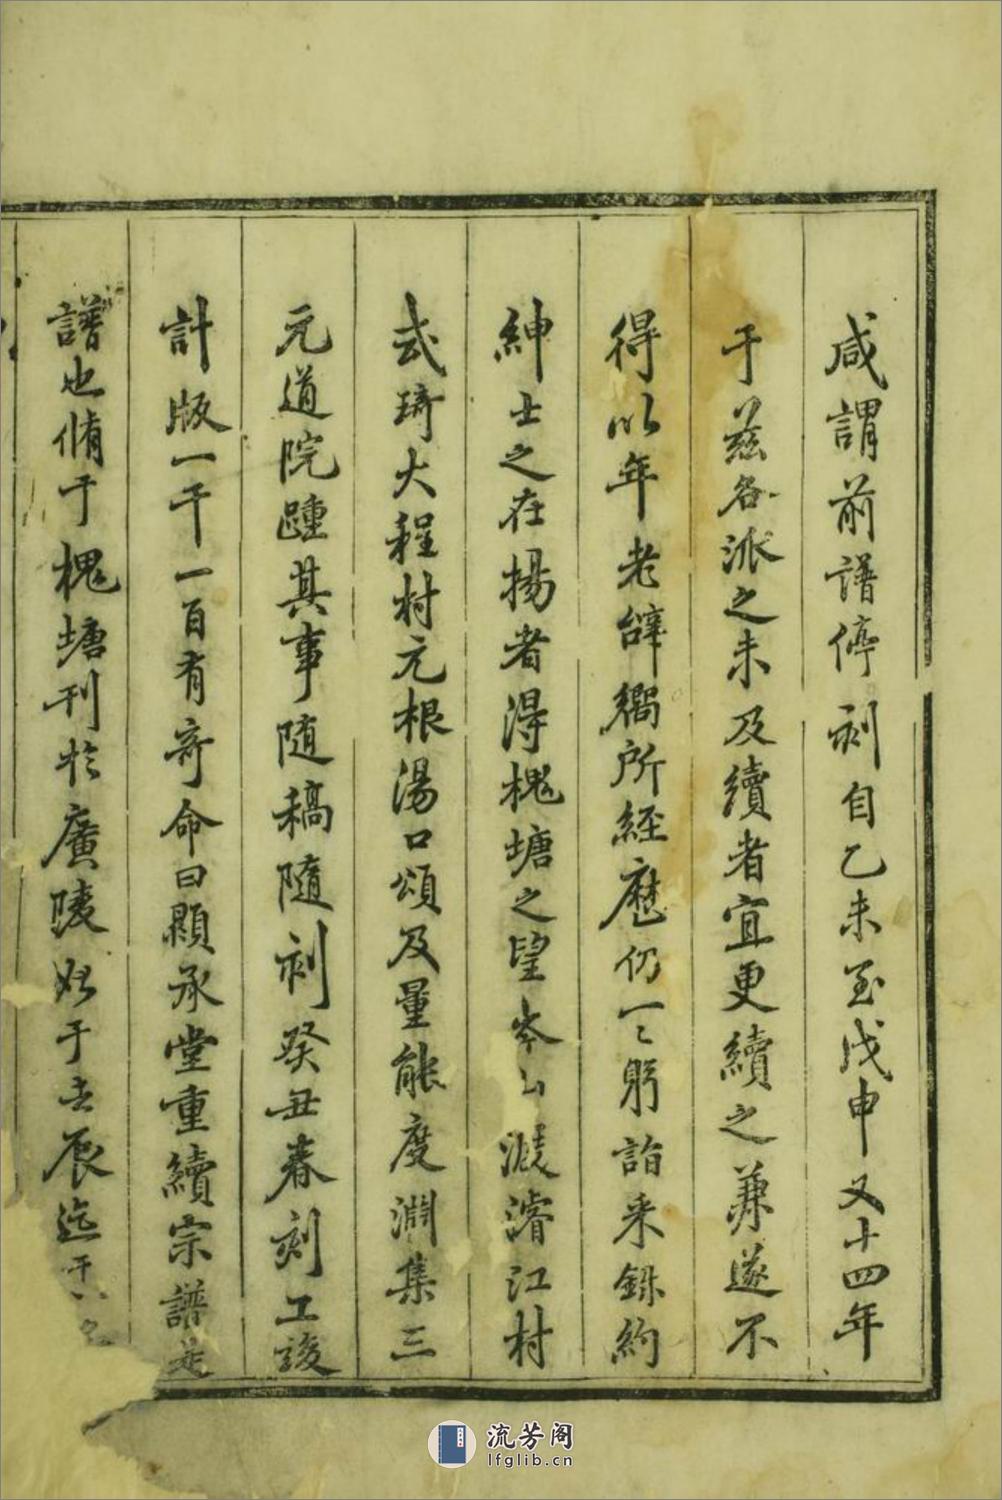 咸謂前譜停刻自乙未至戊申又十四年
于茲各派之未及續者宜更續之葺遂不
得以年老辭嚮所經歷仍一〻躬詣采錄約
紳士之在揚者得槐塘之望岑公漋濬江村
武琦大程村元根湯口頌及量能度淵集三
元道院踵其事隨稿隨刻癸丑春刻工竣
計版一千一百有奇命曰顯承堂重續宗譜是
譜也脩于槐塘刊於廣陵始于壬辰迄于
流芳阁
lfglib.cn